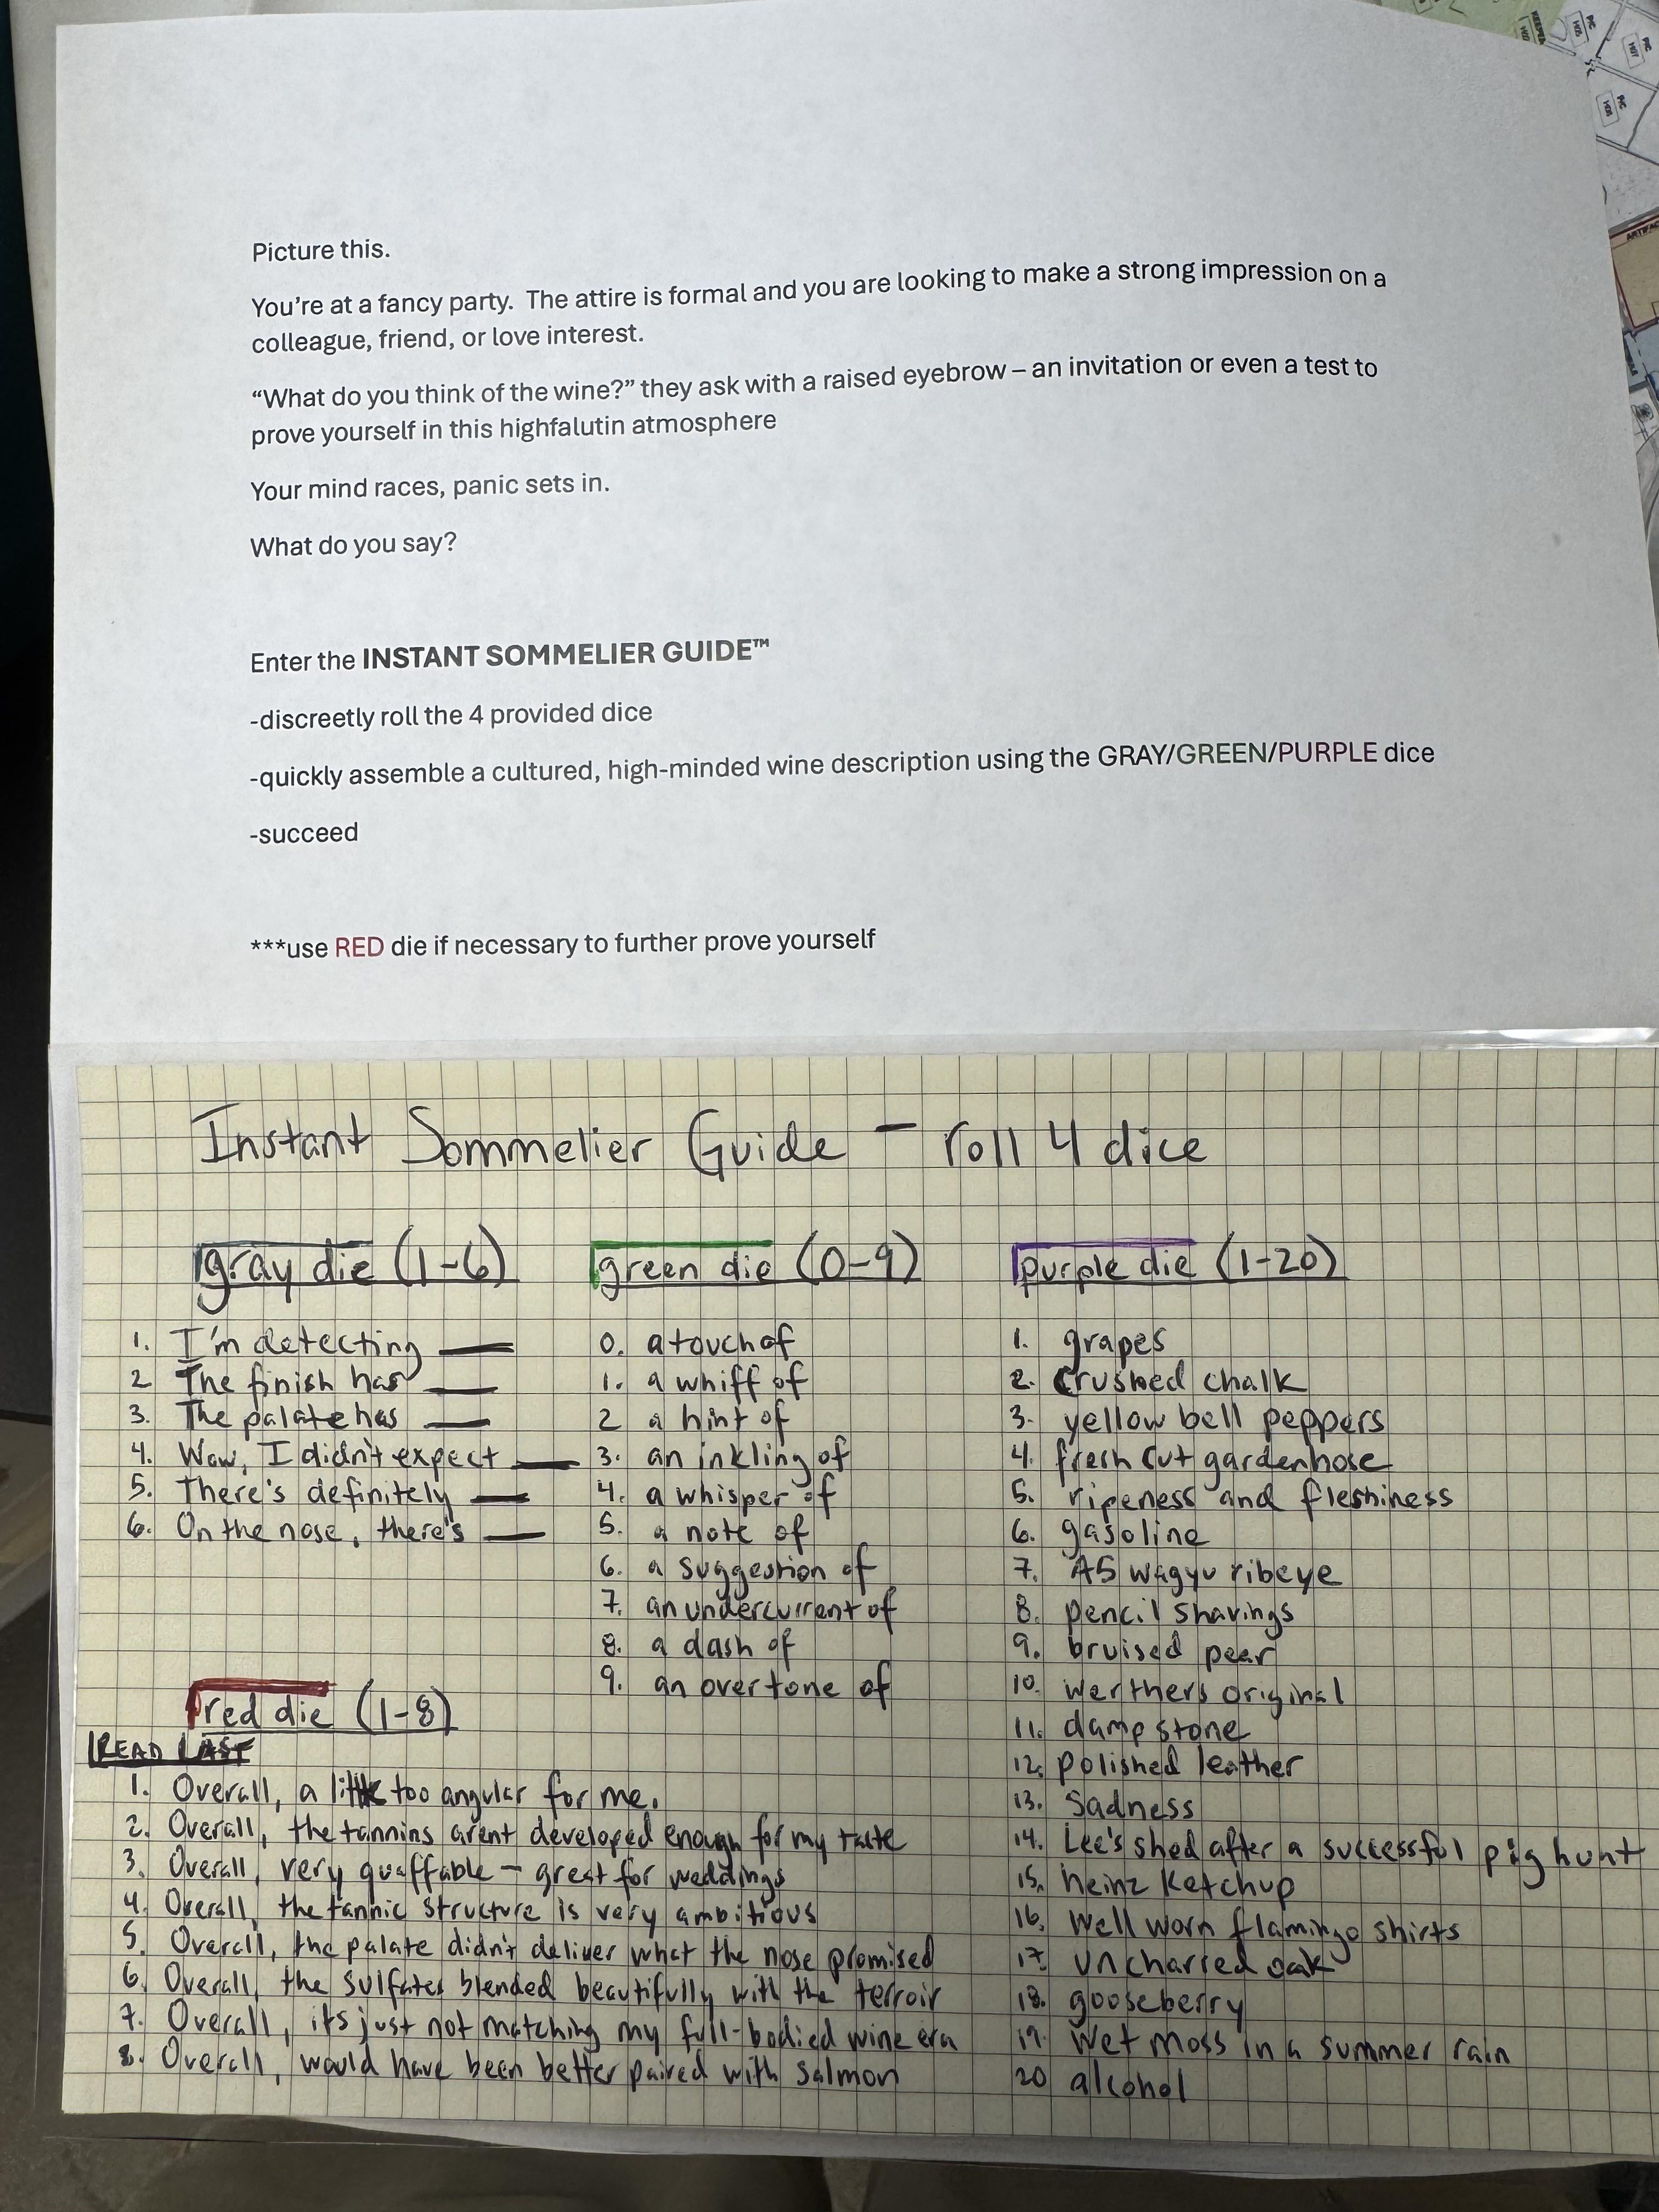 Picture this.
You're at a fancy party.  The attire is formal and you are looking to make a strong impression on a
colleague, friend, or love interest.
“What do you think of the wine?” they ask with a raised eyebrow – an invitation or even a test to
prove yourself in this highfalutin atmosphere
Your mind races, panic sets in.
What do you say?
Enter the INSTANT SOMMELIER GUIDE™
-discreetly roll the 4 provided dice
-quickly assemble a cultured, high-minded wine description using the GRAY/GREEN/PURPLE dice
-succeed
***use RED die if necessary to further prove yourself
Instant Sommelier Guide - roll 4 dice
gray die (1-6)
1. I'm detecting ___
2 The finish has ___
3. The palate has ___
4. Wow, I didn't expect ___
5. There's definitely ___
6. On the nose, there's ___
green die (0-9)
0. a touch of
1. a whiff of
2 a hint of
3. an inkling of
4. a whisper of
5. a note of
6. a suggestion of
7. an undercurrent of
8. a dash of
9. an overtone of
purple die (1-20)
1. grapes
2. crushed chalk
3. yellow bell peppers
4. fresh cut gardenhose
5. ripeness and fleshiness
6. gasoline
7. A5 wagyu ribeye
8. pencil shavings
9. bruised pear
10. werthers original
11. damp stone
12. polished leather
13. Sadness
14. Lee's shed after a successful pig hunt
15. heinz ketchup
16. well worn flamingo shirts
17. uncharred oak
18. gooseberry
19. Wet moss in a summer rain
20 alcohol
red die (1-8)
READ LAST
1. Overall, a little too angular for me.
2. Overall, the tannins arent developed enough for my taste
3. Overall, very quaffable - great for weddings
4. Overall, the tannic structure is very ambitious
5. Overall, the palate didn't deliver what the nose promised
6. Overall, the sulfates blended beautifully with the terroir
7. Overall, its just not matching my full-bodied wine era
8. Overall, would have been better paired with salmon